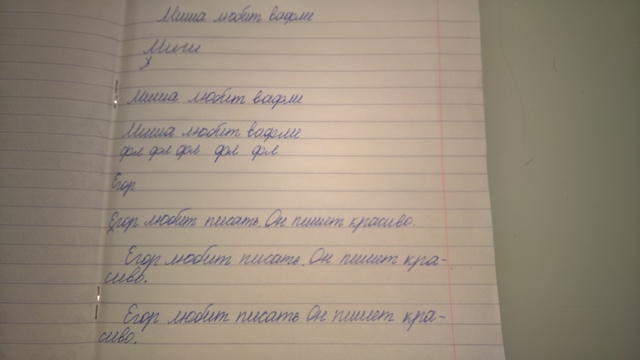 Миша любит вафли
Миши
Миша любит вафли
Миша любит вафли
фл фл фл фл фл
Егор
Егор любит писать. Он пишет красиво.
Егор любит писать. Он пишет кра-
сиво.
Егор любит писать Он пишет кра-
сиво.